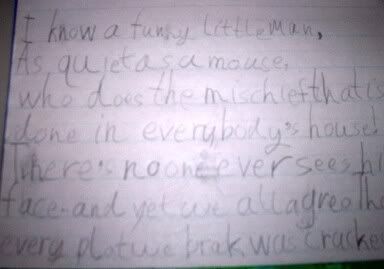 I know a funny little man,
As quiet as a mouse,
who does the mischief that is
done in everybody's house!
There's no one ever sees hi
face. and yet we all agree th
every plot we brak was cracke